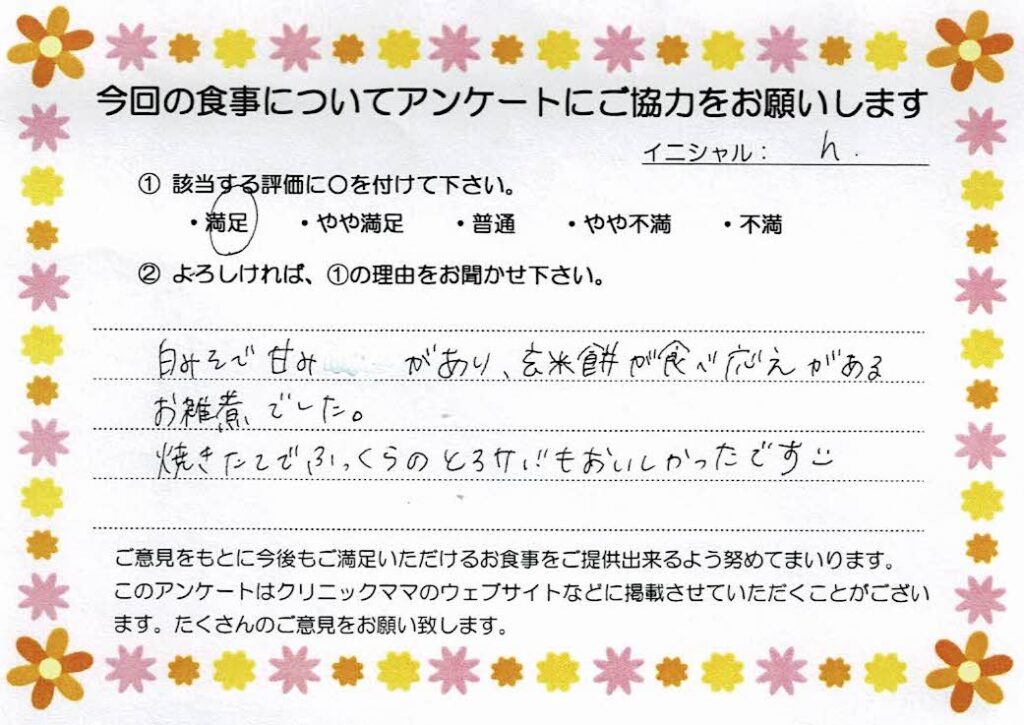 今回の食事についてアンケートにご協力をお願いします
イニシャル： h.
① 該当する評価に○を付けて下さい。
・満足 ・やや満足 ・普通 ・やや不満 ・不満
② よろしければ、①の理由をお聞かせ下さい。
白みそで甘み があり、玄米餅が食べ応えがある
お雑煮でした。
焼きたてでふっくらのとろサバもおいしかったです
ご意見をもとに今後もご満足いただけるお食事をご提供出来るよう努めてまいります。
このアンケートはクリニックママのウェブサイトなどに掲載させていただくことがござい
ます。たくさんのご意見をお願い致します。